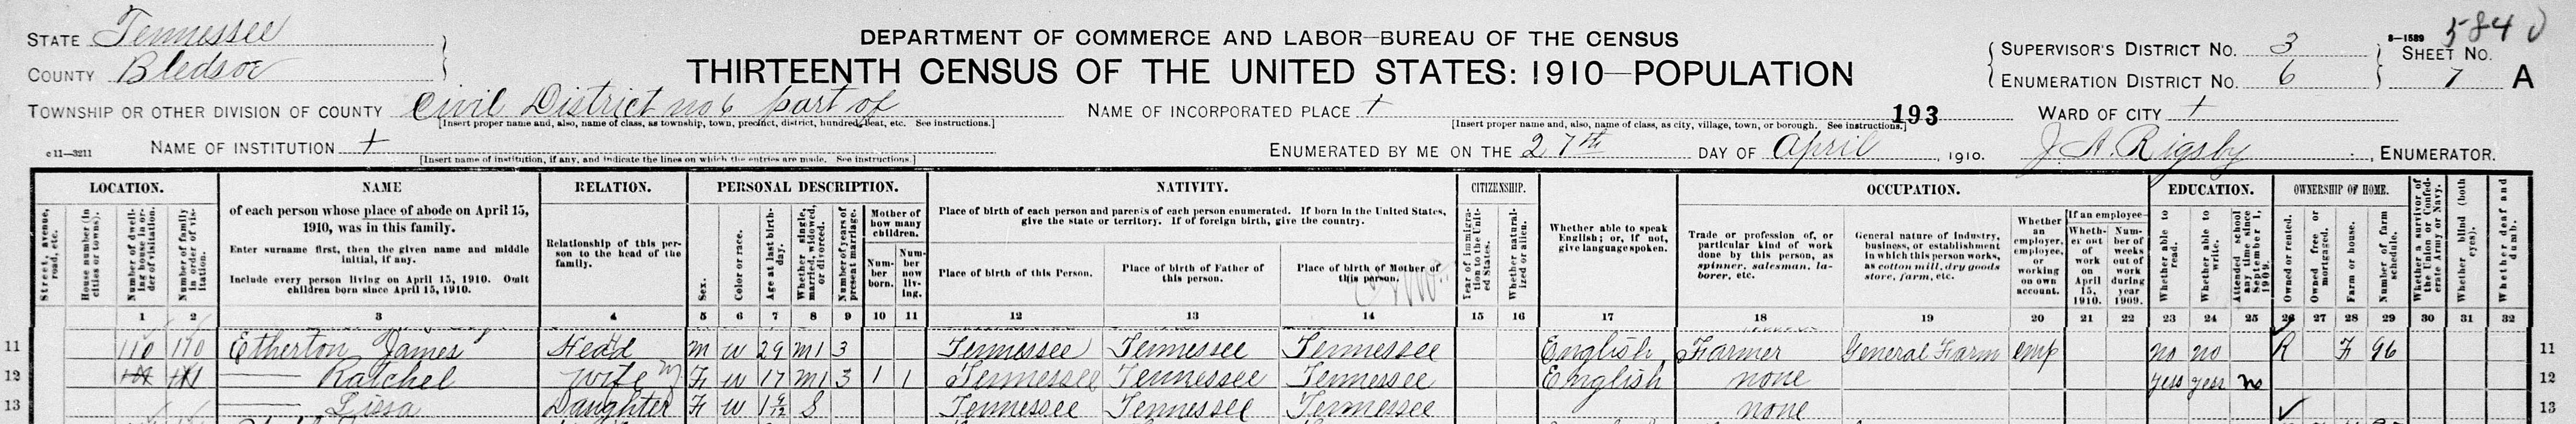 STATE Tennessee
COUNTY Bledsoe
DEPARTMENT OF COMMERCE AND LABOR—BUREAU OF THE CENSUS
THIRTEENTH CENSUS OF THE UNITED STATES: 1910—POPULATION
SUPERVISOR'S DISTRICT NO. 3
ENUMERATION DISTRICT NO. 6
8—1589 584
SHEET NO.
7 A
TOWNSHIP OR OTHER DIVISION OF COUNTY Civil District no 6 part of
[Insert proper name and, also, name of class, as township, town, precinct, district, hundred, beat, etc. See instructions.]
NAME OF INCORPORATED PLACE +
[Insert proper name and, also, name of class, as city, village, town, or borough. See instructions.]
193
WARD OF CITY +
c11—3211
NAME OF INSTITUTION +
[Insert name of institution, if any, and indicate the lines on which the entries are made. See instructions.]
ENUMERATED BY ME ON THE 27th DAY OF April, 1910. J. A. Rigsby, ENUMERATOR.
LOCATION.
Street, avenue, road, etc.
House number (in cities or towns).
Number of dwelling house in order of visitation.
Number of family in order of visitation.
NAME
of each person whose place of abode on April 15, 1910, was in this family.
Enter surname first, then the given name and middle initial, if any.
Include every person living on April 15, 1910. Omit children born since April 15, 1910.
RELATION.
Relationship of this person to the head of the family.
PERSONAL DESCRIPTION.
Sex.
Color or race.
Age at last birthday.
Whether single, married, widowed, or divorced.
Number of years of present marriage.
Mother of how many children.
Number born.
Number now living.
NATIVITY.
Place of birth of each person and parents of each person enumerated. If born in the United States, give the state or territory. If of foreign birth, give the country.
Place of birth of this Person.
Place of birth of Father of this person.
Place of birth of Mother of this person.
CITIZENSHIP.
Year of immigration to the United States.
Whether naturalized or alien.
Whether able to speak English; or, if not, give language spoken.
OCCUPATION.
Trade or profession of, or particular kind of work done by this person, as spinner, salesman, laborer, etc.
General nature of industry, business, or establishment in which this person works, as cotton mill, dry goods store, farm, etc.
Whether an employer, employee, or working on own account.
If an employee—
Whether out of work on April 15, 1910.
Number of weeks out of work during year 1909.
EDUCATION.
Whether able to read.
Whether able to write.
Attended school any time since September 1, 1909.
OWNERSHIP OF HOME.
Owned or rented.
Owned free or mortgaged.
Farm or house.
Number of farm schedule.
Whether a survivor of the Union or Confederate Army or Navy.
Whether blind (both eyes).
Whether deaf and dumb.
1 2 3 4 5 6 7 8 9 10 11 12 13 14 15 16 17 18 19 20 21 22 23 24 25 26 27 28 29 30 31 32
11 110 110 Etherton James Head M W 29 M1 3 Tennessee Tennessee Tennessee English Farmer General Farm emp no no R F 96 11
12 Ratchel wife F W 17 M1 3 1 1 Tennessee Tennessee Tennessee English none yess yess no 12
13 Lissa Daughter F W 1 S Tennessee Tennessee Tennessee none 13